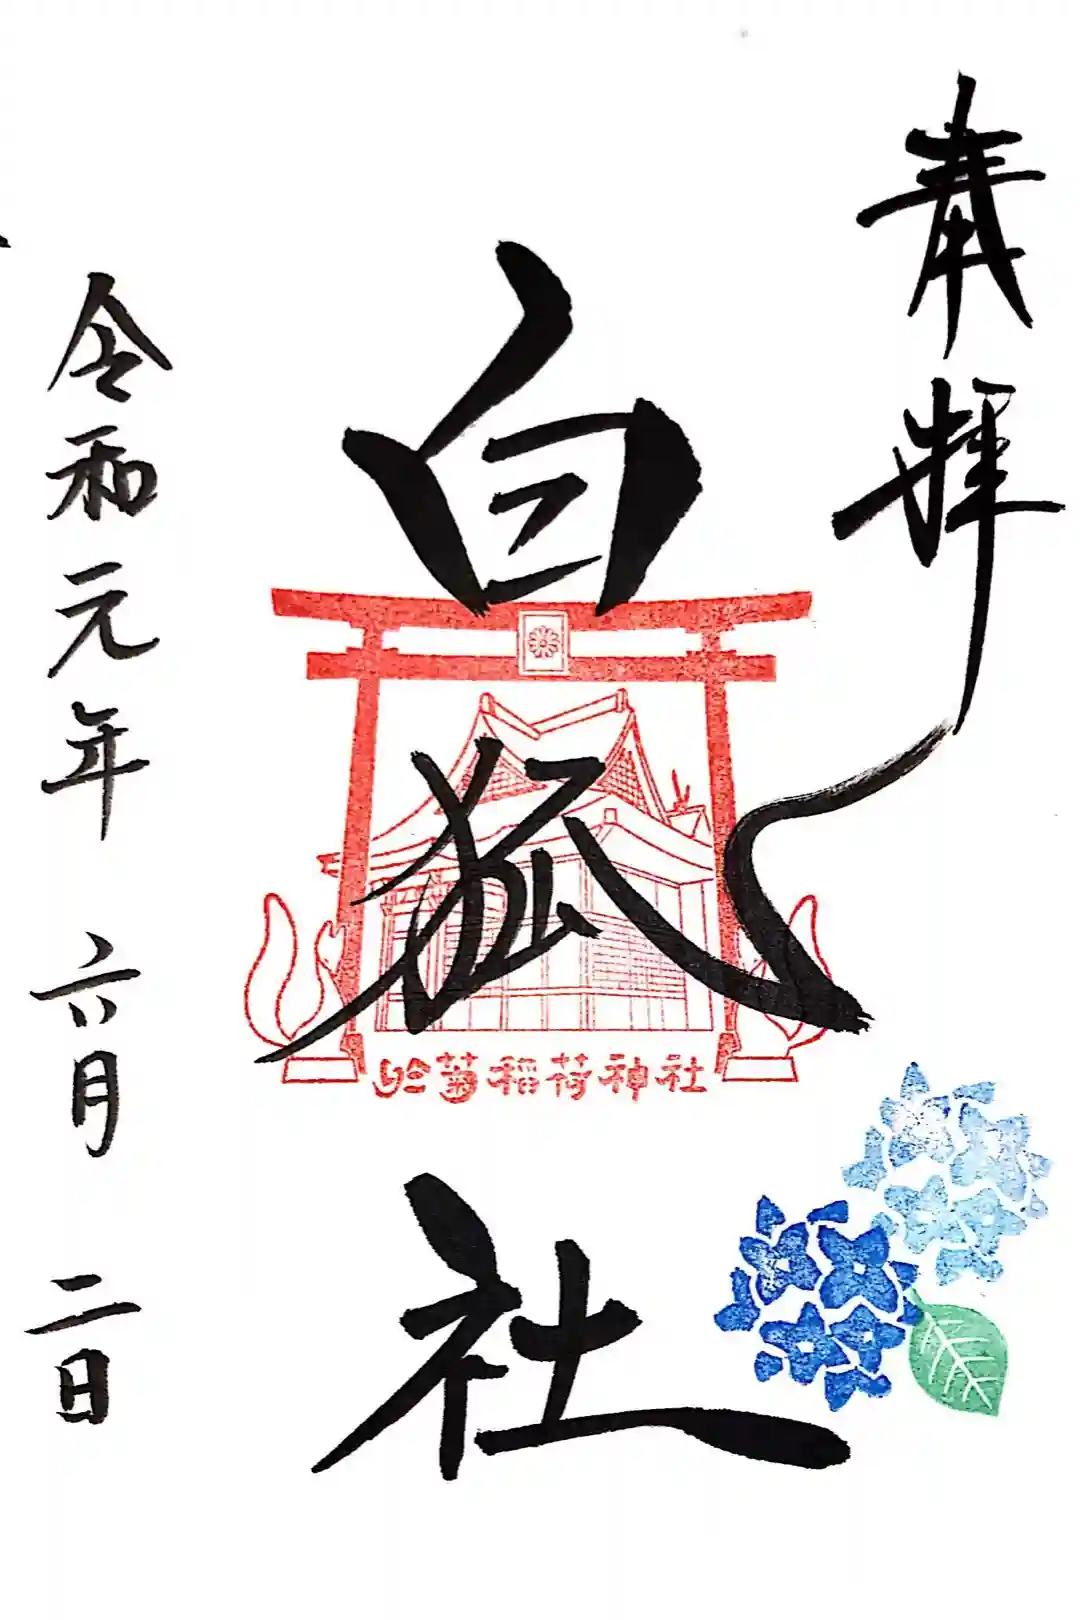 奉拝
白狐社
於菊稲荷神社
令和元年六月二日